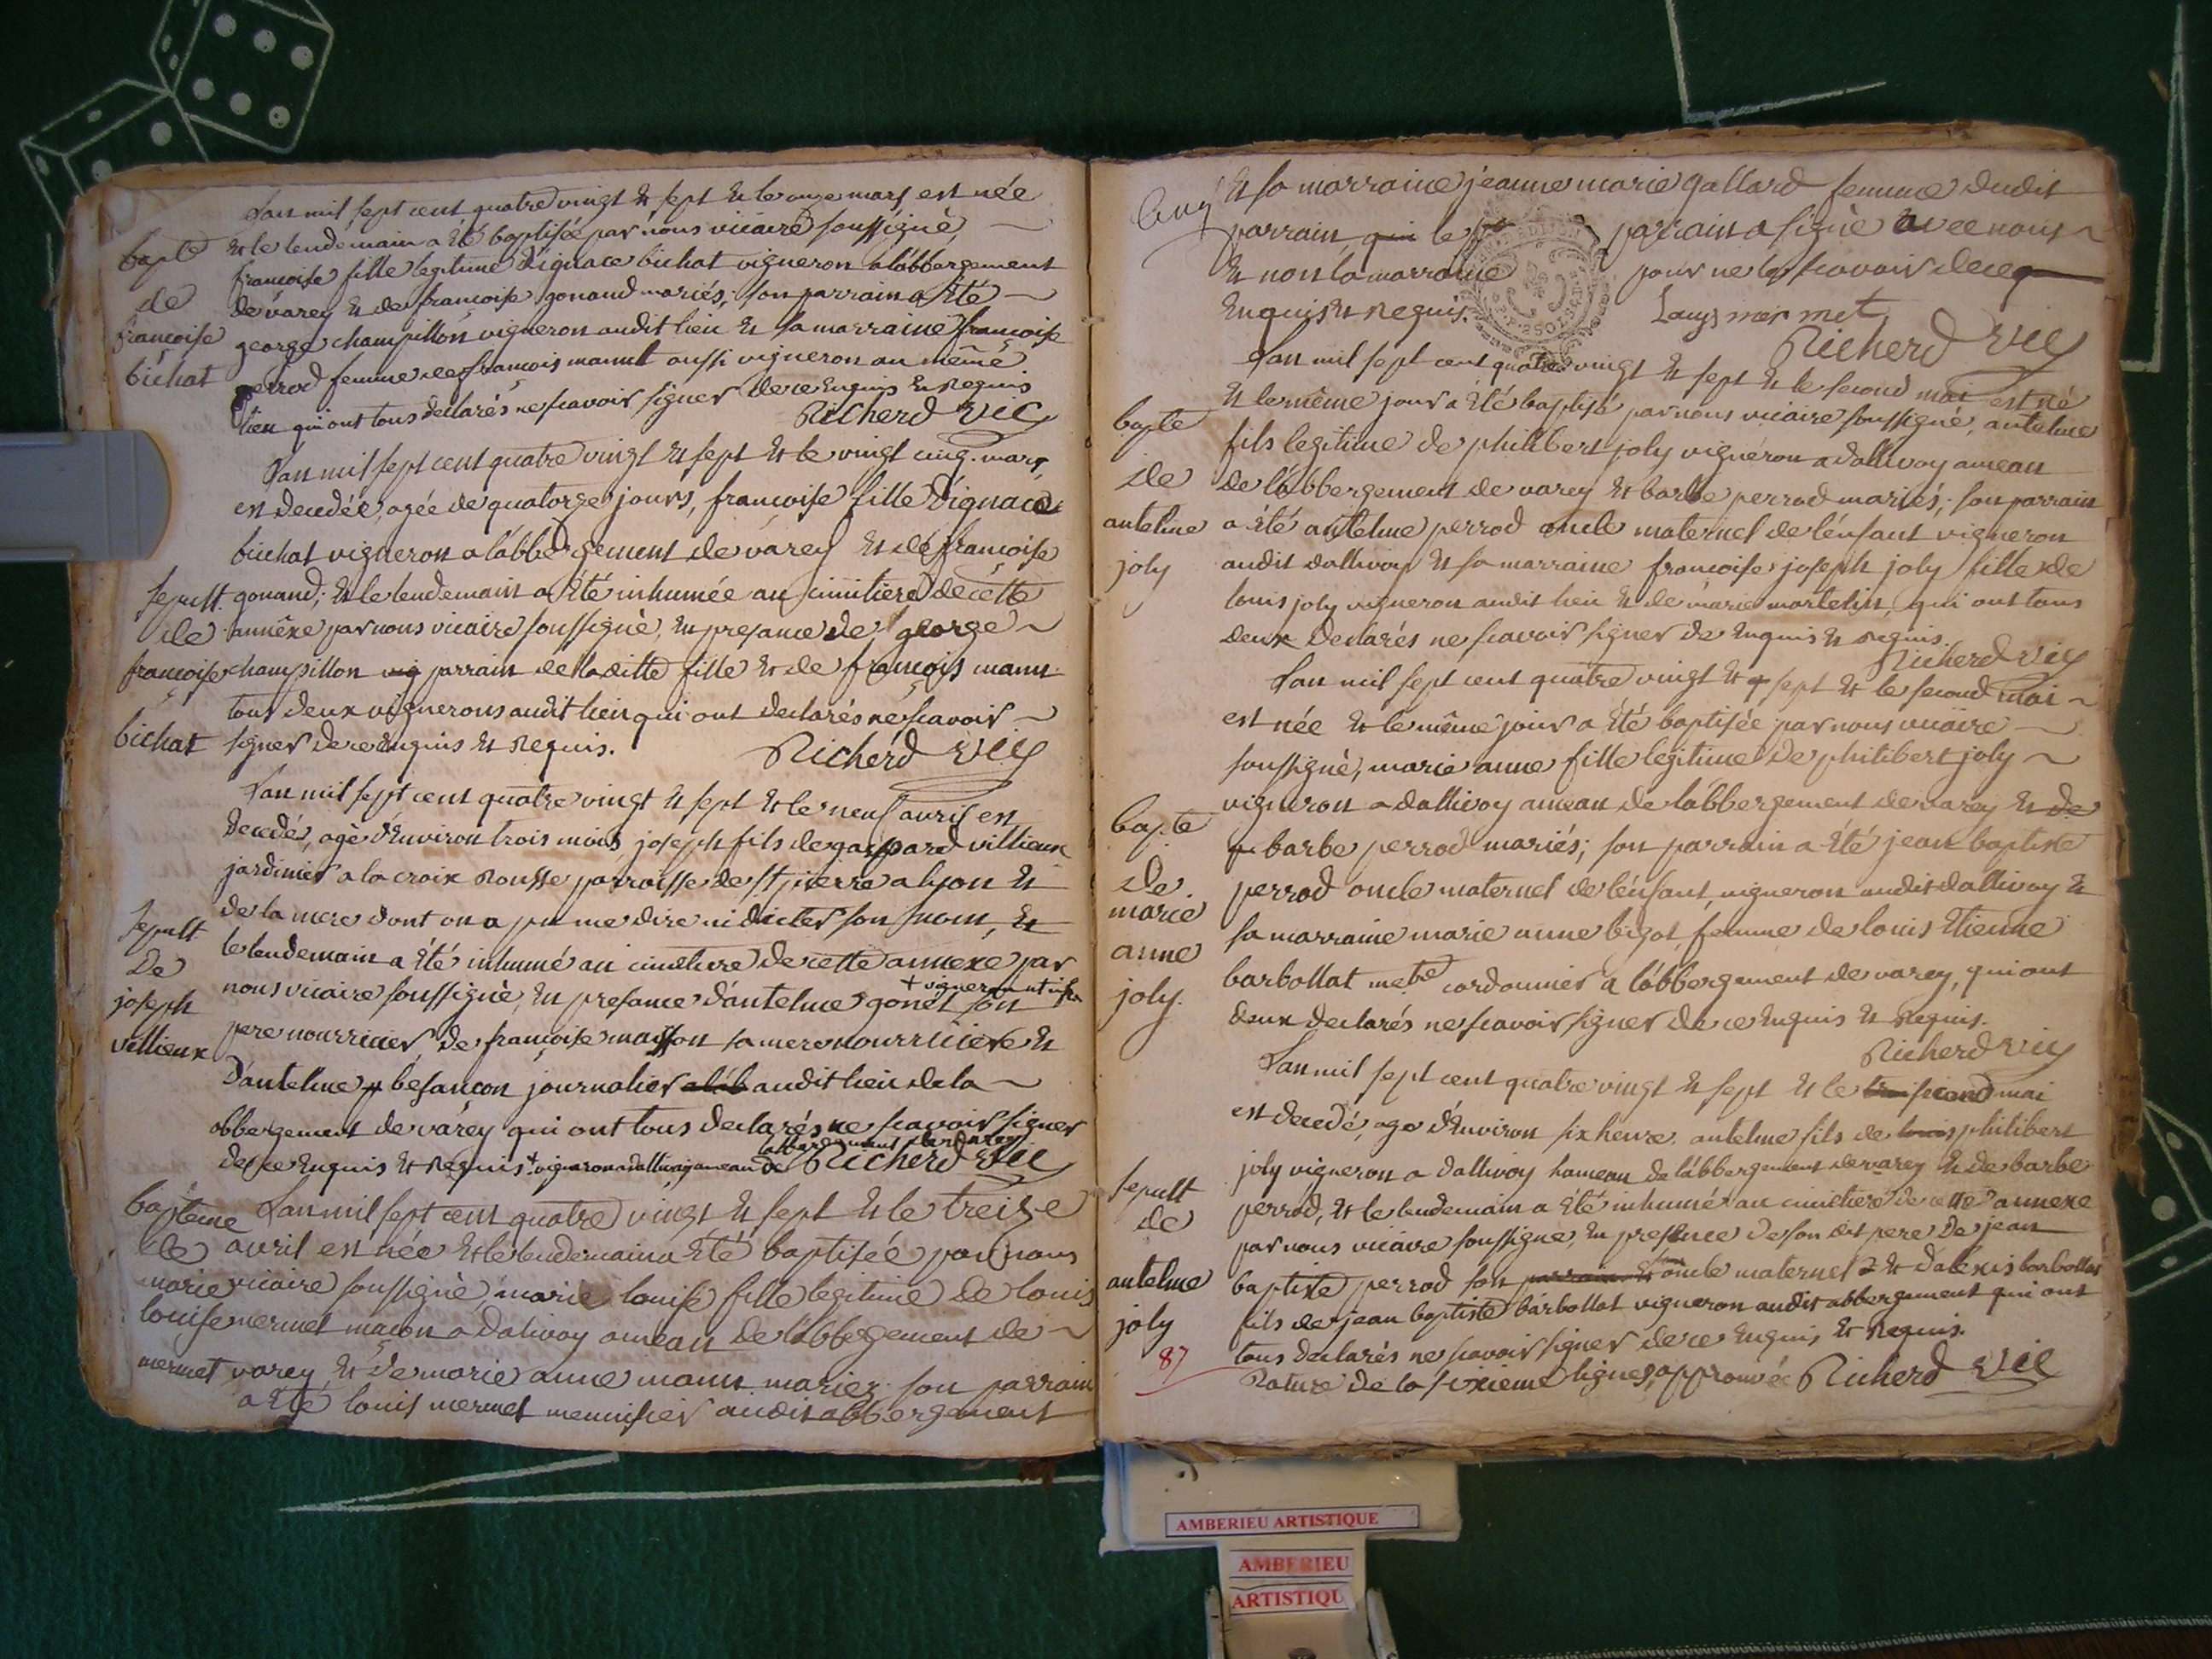 L'an mil sept cent quatre vingt et sept et le onze mars est née
bapte et le lendemain a été baptisée par nous vicaire soussigné,
françoise fille legitime d'ignace bichat vigneron a l'abbergement
de de varey et de françoise gonand mariés; son parrain a été
françoise george champillon vigneron audit lieu et sa marraine françoise
bichat perrod femme de françois manut aussi vigneron au même
lieu qui ont tous declarés ne scavoir signer de ce enquis et requis
Richerd vic
L'an mil sept cent quatre vingt et sept et le vingt cinq mars
est decedée, agée de quatorze jours, françoise fille d'ignace
bichat vigneron a l'abbergement de varey et de françoise
sepult. gonand; et le lendemain a été inhumée au cimitiere de cette
de annêxe par nous vicaire soussigné, en presance de george
françoise champillon vig parrain de laditte fille et de françois manu
tous deux vignerons audit lieu qui ont declarés ne scavoir
bichat signer de ce enquis et requis. Richerd vic
L'an mil sept cent quatre vingt et sept et le neuf avril est
decedé, agé d'environ trois mois joseph fils de gaspard villieux
jardinier a la croix rousse parroisse de st pierre a lyon et
de la mere dont on a pu me dire ni dicter son nom, et
sepult. le lendemain a été inhumé au cimetiere de cette annexe par
de nous vicaire soussigné, en presance d'antelme gonet son
+ vigneron
joseph pere nourricier, de françoise masson sa mere nourriciere et
villieux d'antelme besançon journalier audit lieu de la
abbergement de varey qui ont tous declarés ne scavoir signer
de ce enquis et requis + vigneron a dallivoy ameau de l'abbergement de varey Richerd vic
baptême L'an mil sept cent quatre vingt et sept et le treize
de avril est née et le lendemain a été baptisée par nous
marie vicaire soussigné, marie louise fille legitime de louis
louise mermet maçon a dalivoy ameau de l'abbergement de
mermet varey et de marie anne manu mariez son parrain
a été louis mermet menuisier audit abbergement
et sa marraine jeanne marie gallard femme dudit
parrain, qui le parrain a signé avec nous
et non la marraine pour ne le scavoir de ce
enquis et requis. Louys mermet
Richerd vic
L'an mil sept cent quatre vingt et sept et le second mai est né
et le même jour a été baptisé par nous vicaire soussigné, antelme
bapte fils legitime de philibert joly vigneron a dallivoy ameau
de de l'abbergement de varey et barbe perrod mariés; son parrain
antelme a été antelme perrod oncle maternel de l'enfant vigneron
joly audit dallivoy et sa marraine françoise joseph joly fille de
louis joly vigneron audit lieu et de marie martelin, qui ont tous
deux declarés ne scavoir signer de enquis et requis.
Richerd vic
L'an mil sept cent quatre vingt et sept et le second mai
est née et le même jour a été baptisée par nous vicaire
soussigné, marie anne fille legitime de philibert joly
vigneron a dallivoy ameau de l'abbergement de varey et de
bapte barbe perrod mariés; son parrain a été jean baptiste
de perrod oncle maternel de l'enfant, vigneron audit dallivoy et
marie sa marraine marie anne bizot, femme de louis etienne
anne barbollat me cordonnier a l'abbergement de varey, qui ont
joly. deux declarés ne scavoir signer de ce enquis et requis.
Richerd vic
L'an mil sept cent quatre vingt et sept et le second mai
est decedé, age d'environ six heure antelme fils de louis philibert
joly vigneron a dallivoy hameau de l'abbergement de varey et de barbe
sepult perrod, et le lendemain a été inhumé au cimetiere de cette annexe
de par nous vicaire soussigné, en presence de son dit pere de jean
antelme baptiste perrod son oncle maternel et d'alexis barbollat
joly fils de jean baptiste barbollat vigneron audit abbergement qui ont
tous declarés ne scavoir signer de ce enquis et requis.
87
Rature de la sixieme ligne approuvée Richerd vic
AMBERIEU ARTISTIQUE
AMBERIEU
ARTISTIQU